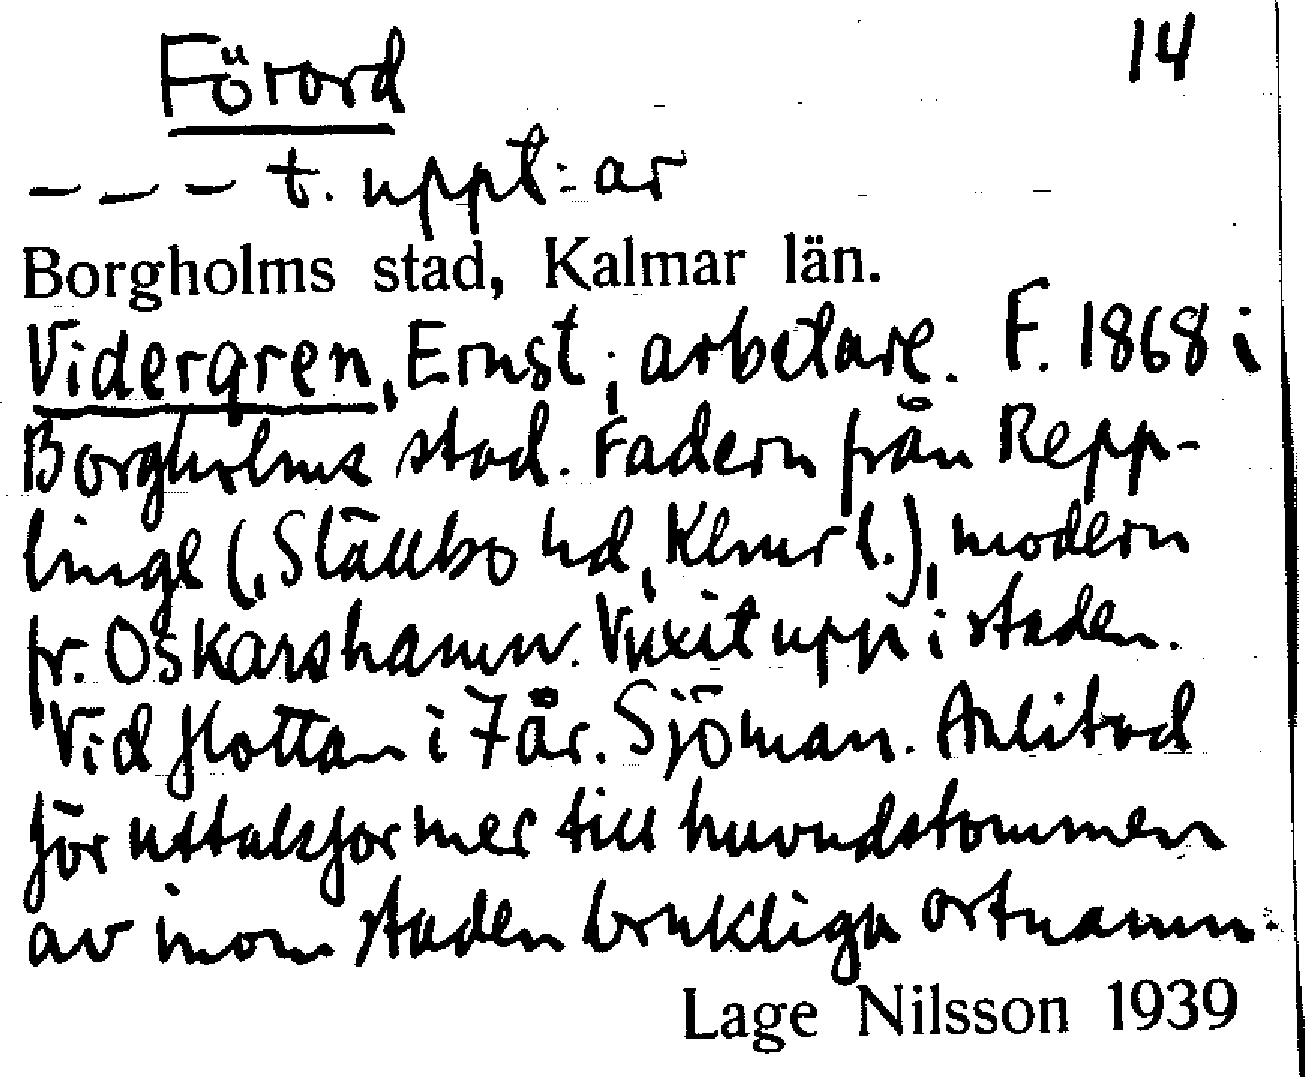 Förord 14
– – – t. uppt:ar
Borgholms stad, Kalmar län.
Vidergren, Ernst, arbetare. F. 1868 i
Borgholms stad. Fadern från Repp-
linge (, Slättbo hd, Klmr l.), modern
fr. Oskarshamn. Vuxit upp i staden.
Vid flottan i 7 år. Sjöman. Anlitad
för uttalsformer till huvudstommen
av inom staden brukliga ortnamn.
Lage Nilsson 1939